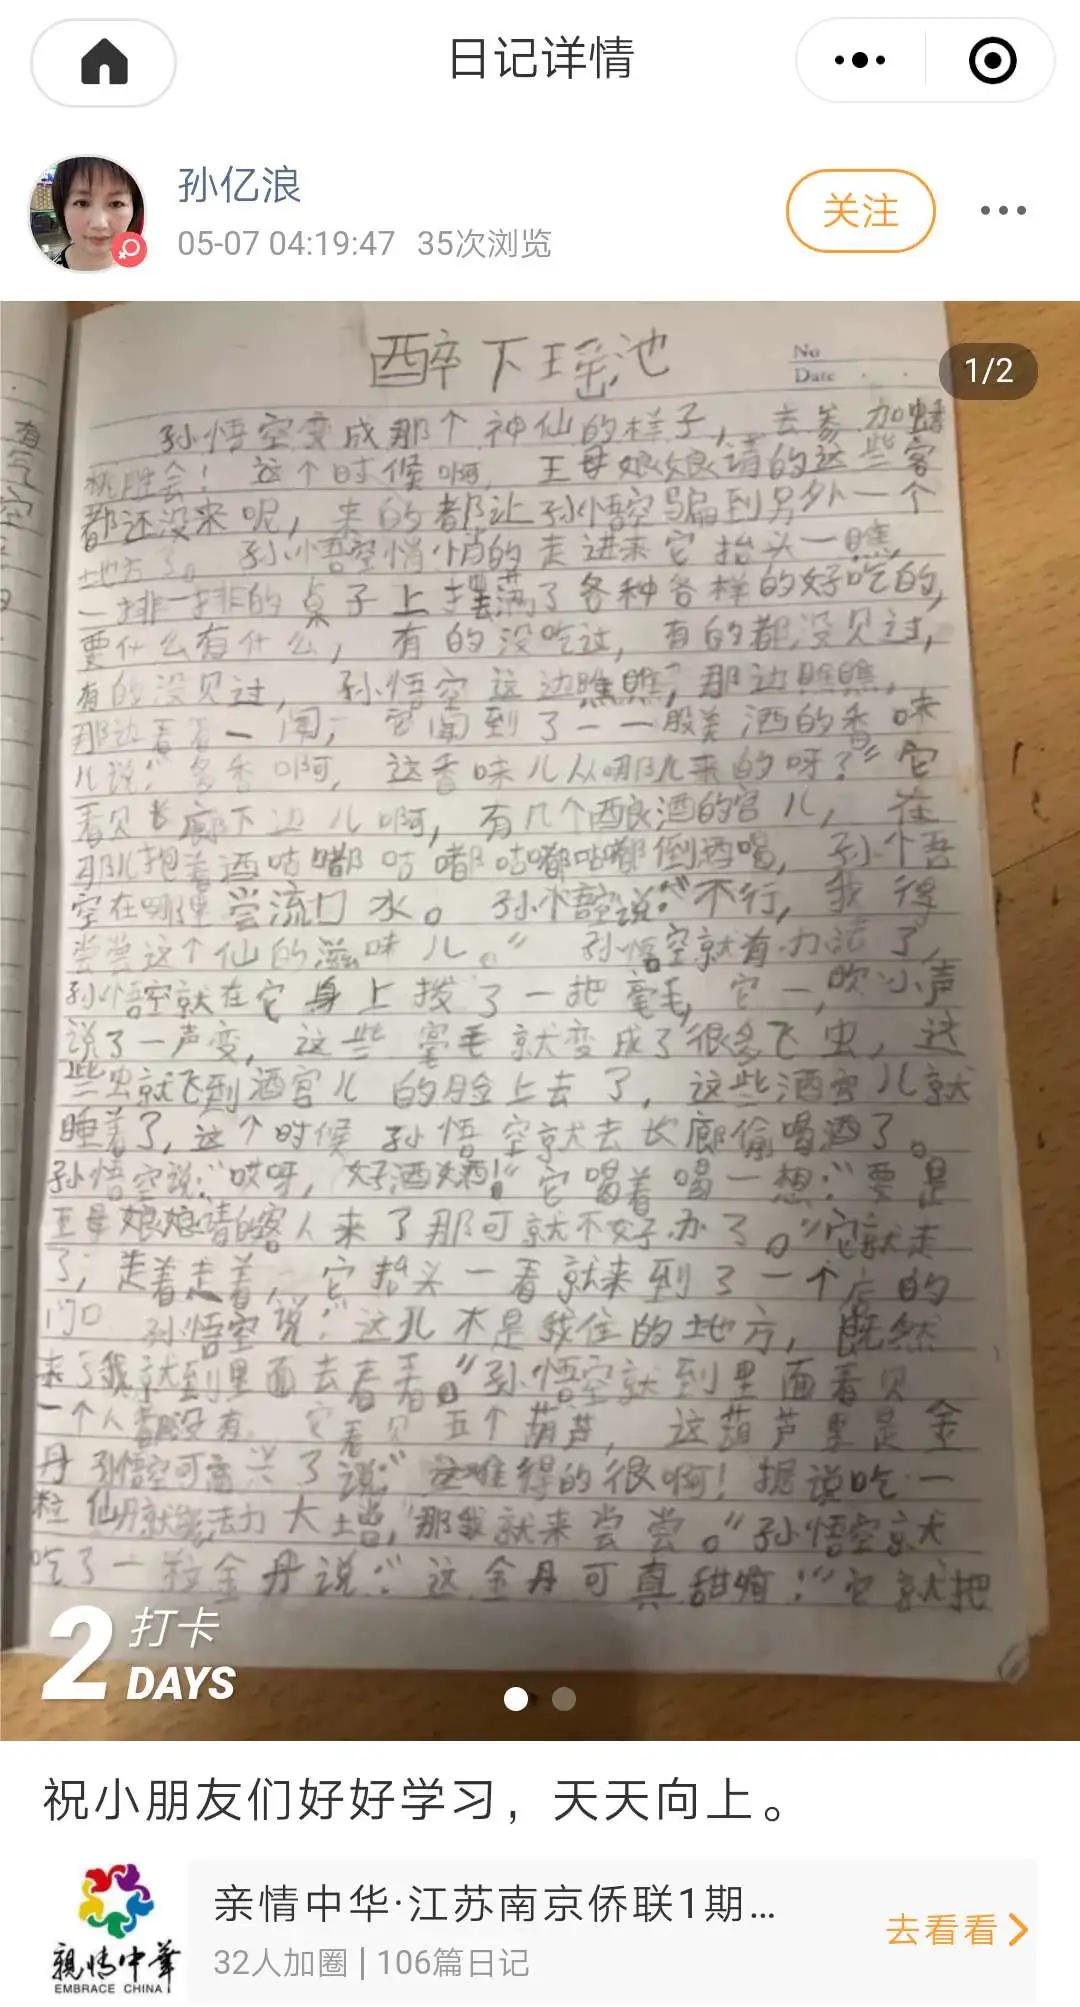 日记详情
孙亿浪
05-07 04:19:47 35次浏览
关注
1/2
No
Date
醉下瑶池
孙悟空变成那个神仙的样子，去参加蟠
桃胜会！这个时候啊，王母娘娘请的这些客
都还没来呢，来的都让孙悟空骗到另外一个
地方了。孙悟空悄悄的走进来它抬头一瞧，
一排一排的桌子上摆满了各种各样的好吃的，
要什么有什么，有的没吃过，有的都没见过，
有的没见过，孙悟空这边瞧瞧，那边瞧瞧，
那边看看一闻，它闻到了一一股美酒的香味
儿说：“多香啊，这香味儿从哪儿来的呀？”它
看见长廊下边儿啊，有几个酿酒的官儿，在
那儿抱着酒咕嘟咕嘟咕嘟咕嘟倒酒喝，孙悟
空在哪里尝流口水。孙悟空说：“不行，我得
尝尝这个仙的滋味儿。”孙悟空就有办法了，
孙悟空就在它身上拨了一把毫毛，它一吹小声
说了一声变，这些毫毛就变成了很多飞虫，这
些虫就飞到酒官儿的脸上去了，这些酒官儿就
睡着了，这个时候孙悟空就去长廊偷喝酒了。
孙悟空说：“哎呀，好酒好酒！”它喝着喝一想：“要是
王母娘娘请的客人来了那可就不好办了。”它就走
了，走着走着，它抬头一看就来到了一个店的
门口 孙悟空说：“这儿不是我住的地方，既然
来了我就到里面去看看。”孙悟空就到里面看见
一个人都没有，它看见五个葫芦，这葫芦里是金
丹孙悟空可高兴了说：“这难得的很啊！据说吃一
粒仙丹就能活力大增，“那我就来尝尝。”孙悟空就
吃了一粒金丹说：“这金丹可真甜啊！”它就把
2 打卡
DAYS
祝小朋友们好好学习，天天向上。
亲情中华·江苏南京侨联1期...
32人加圈 | 106篇日记
去看看
親情中華
EMBRACE CHINA